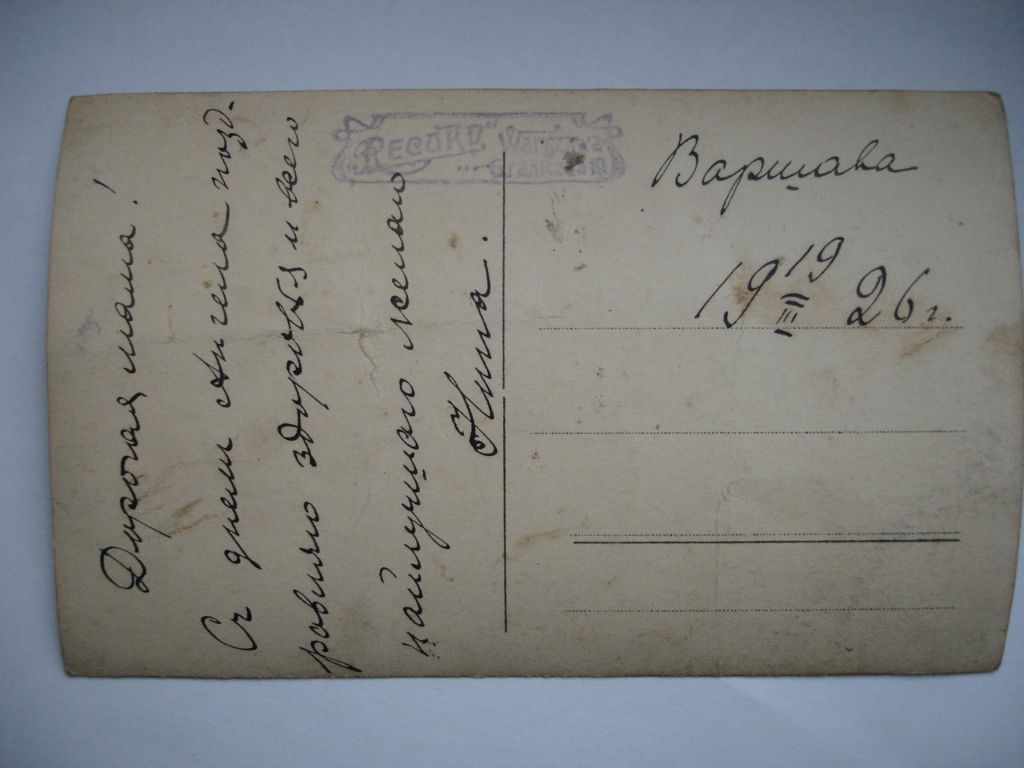 Дорогая мама!
Съ днем Ангела позд-
ровляю здоровья и всего
найлучшаго желаю
Нина.
"RECORD"
Варшава
19 19/III 26 г.